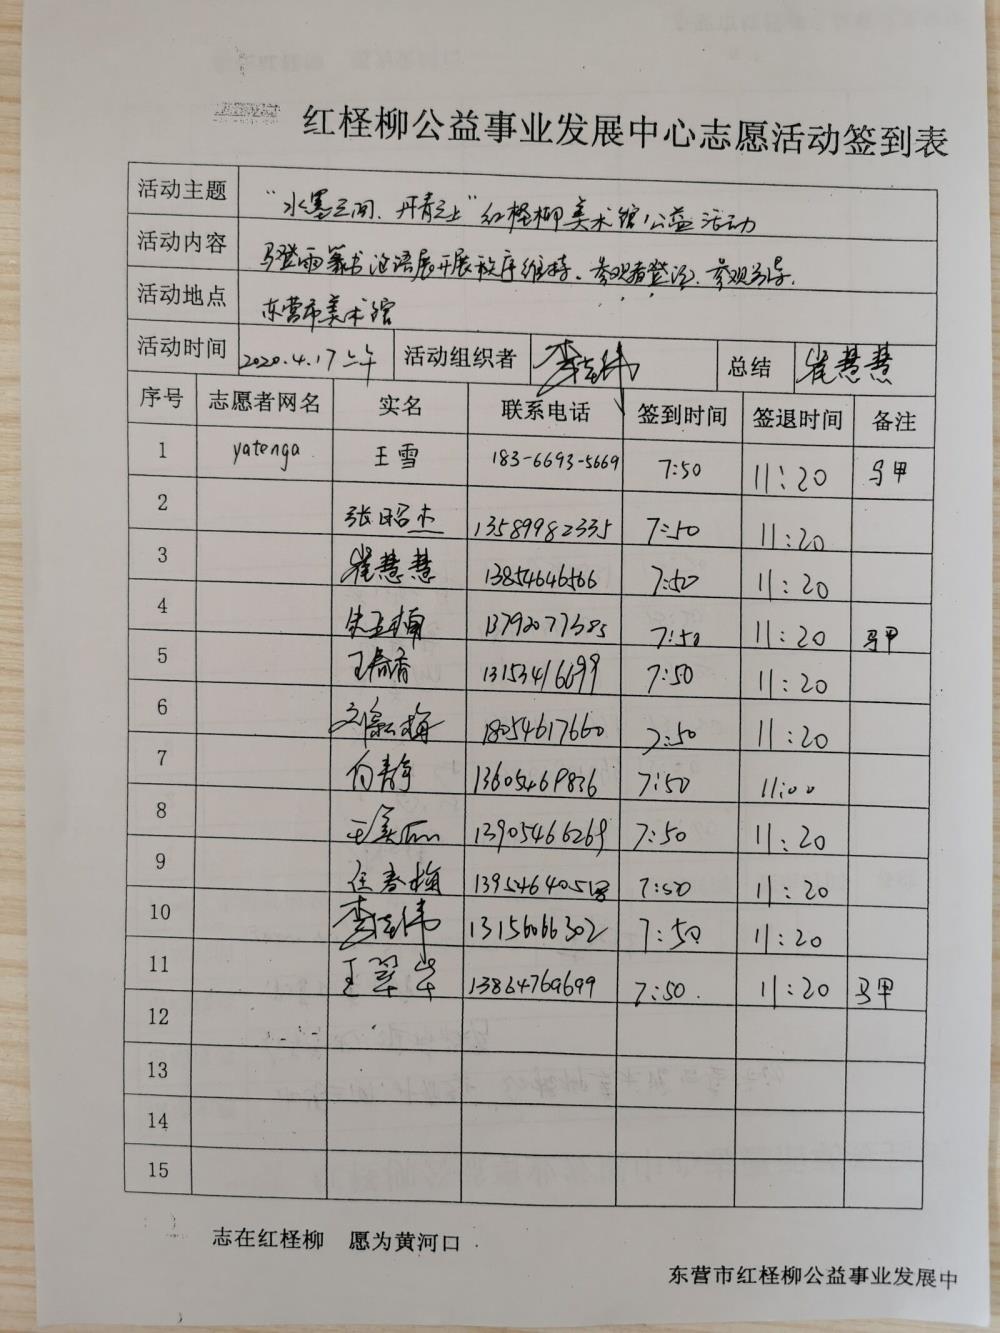 红柽柳公益事业发展中心志愿活动签到表
活动主题 “水墨之间、丹青之上”红柽柳美术馆公益活动
活动内容 马登雨篆书论语展开展秩序维持、参观者登记、参观引导.
活动地点 东营市美术馆
活动时间 2020.4.17上午 活动组织者 总结 崔慧慧
序号 志愿者网名 实名 联系电话 签到时间 签退时间 备注
1 yatenga 王雪 183-6693-5669 7:50 11:20 马甲
2 张昭杰 13589982335 7:50 11:20
3 崔慧慧 13854646566 7:50 11:20
4 13792077385 7:50 11:20 马甲
5 王春香 13153416699 7:50 11:20
6 18054617660 7:50 11:20
7 向静 13605469836 7:50 11:00
8 13905466269 7:50 11:20
9 任春梅 7:50 11:20
10 13156066302 7:50 11:20
11 王翠华 13864769699 7:50 11:20 马甲
12
13
14
15
志在红柽柳 愿为黄河口
东营市红柽柳公益事业发展中